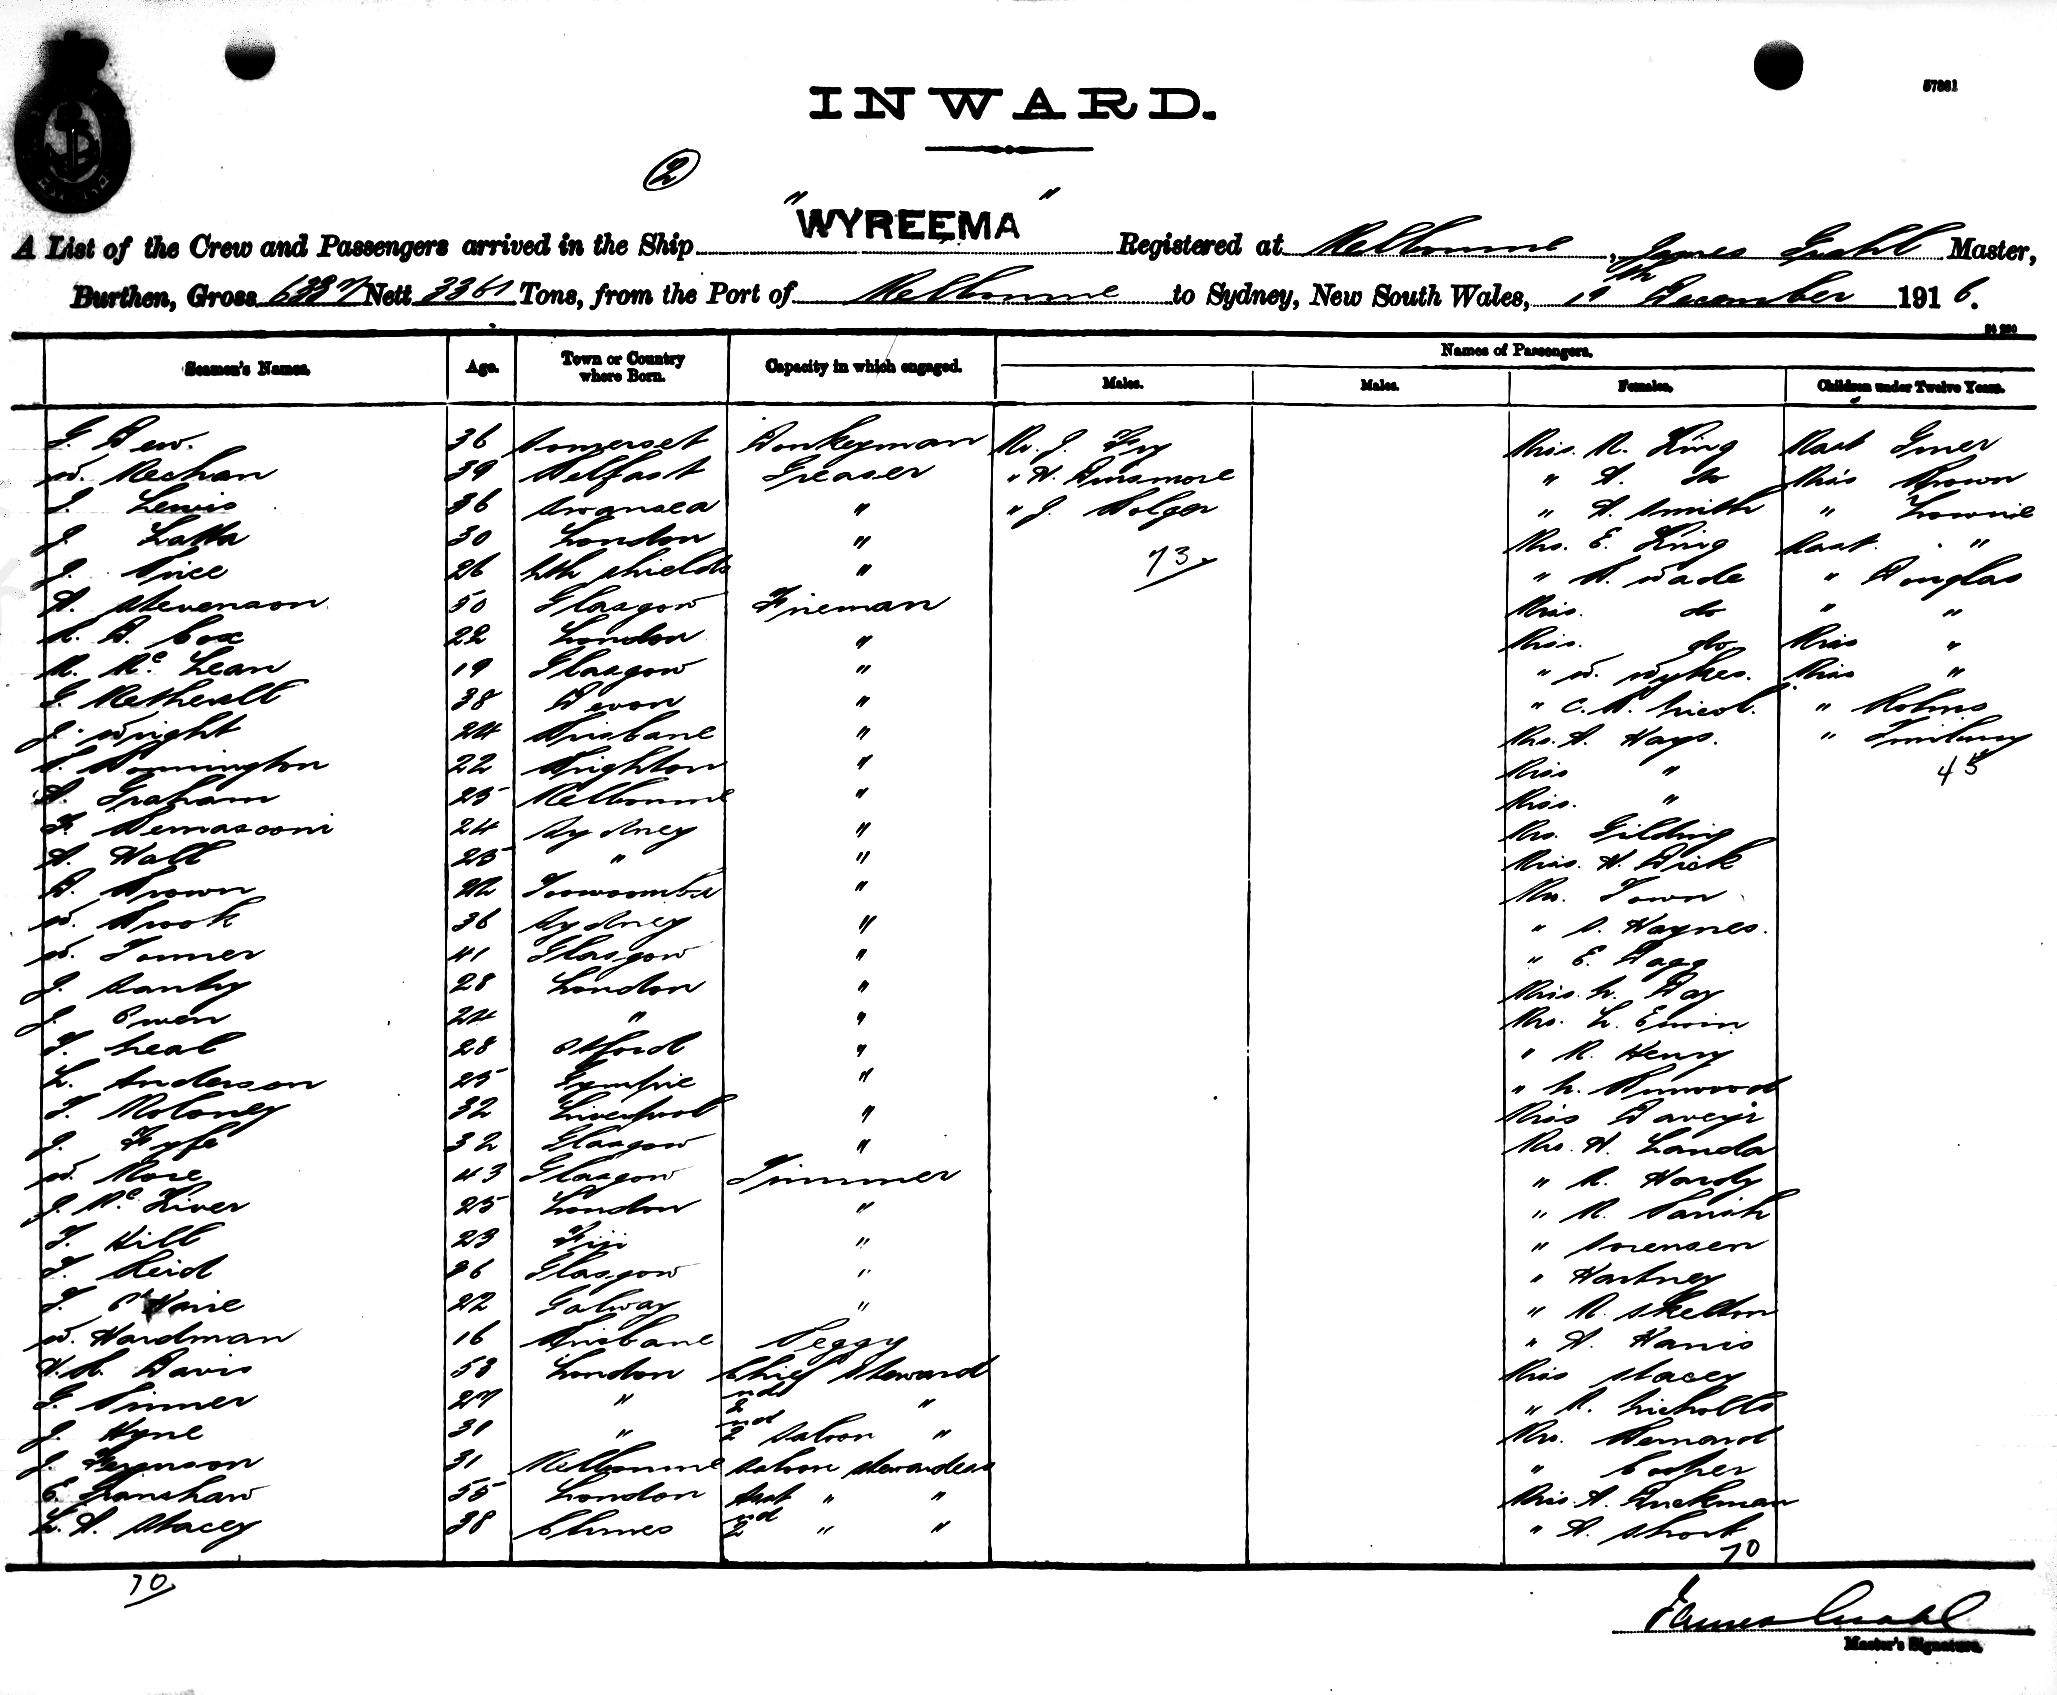 57881
INWARD.
2
A List of the Crew and Passengers arrived in the Ship "WYREEMA" Registered at Melbourne, James Master,
Burthen, Gross 6337 Nett 3361 Tons, from the Port of Melbourne to Sydney, New South Wales, December 1916.
Seamen's Names. Age. Town or Country where Born. Capacity in which engaged. Names of Passengers.
Males. Males. Females. Children under Twelve Years.
G. Dew. 36 Somerset Donkeyman Mr. J. Fry Miss. M. King Mast Imer
W. Mechan 39 Belfast Greaser " H. Dinsmore " A. do Miss Brown
J. Lewis 36 Swansea " " J. Bolger " A. Smith " Lownie
J. Latta 30 London " 73 Mrs. E. King Mast. "
J. Price 26 Nth Shields " " A. Wade " Douglas
A. Stevenson 50 Glasgow Fireman Miss. do " "
R. D. Cox 22 London " Miss. do Miss "
M. McLean 19 Glasgow " " W. Wykes. Miss "
G. Metherell 38 Devon " " C. M. Nicol. "
J. Wright 24 Brisbane " Mrs. A. Hays. "
Bonnington 22 Brighton " Miss " 45
A. Graham 25 Melbourne " Miss. "
F. Bernasconi 24 Sydney " Mrs. Gilding
A. Hall 25 " " Miss. H. Dick
D. Brown 22 Toowoomba " Mrs. Town
W. Brook 36 Sydney " " S. Haynes.
W. Tonner 41 Glasgow " " E. Dagg
J. Sanby 28 London " Miss. N. Day
J. Owen 24 " " Mrs. L. Erwin
T. Neal 28 Oxford " " M. Henry
L. Anderson 25 Gympie " " N.
T. Moloney 32 Liverpool " Miss
J. Fyfe 32 Glasgow " Mrs. H. Landa
W. More 43 Glasgow Trimmer " M. Hardy
J. McKiver 25 London " " M. Parish
T. Hill 23 Fiji " " Sorensen
T. Reid 26 Glasgow " " Hartney
T. O'Haire 22 Galway " " M. Skelton
W. Hardman 16 Brisbane Peggy " A. Harris
H. R. Davis 53 London Chief Steward Miss Stacey
G. Pinner 27 " 2nd " " M. Nicholls
J. Hyne 31 " 2nd Saloon " Mrs. Bernard
J. Ferguson 31 Melbourne Saloon Stewardess " Cooper
E. Granshaw 55 London Asst " " Miss. A. Duckman
L. A. Stacey 38 Clunes 2nd " " " A. Short
70
70
James
Master's Signature.